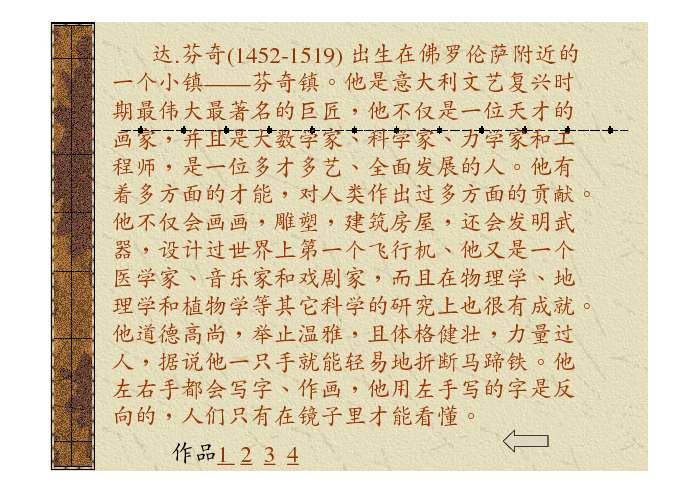 达.芬奇(1452-1519) 出生在佛罗伦萨附近的
一个小镇——芬奇镇。他是意大利文艺复兴时
期最伟大最著名的巨匠，他不仅是一位天才的
画家，并且是大数学家、科学家、力学家和工
程师，是一位多才多艺、全面发展的人。他有
着多方面的才能，对人类作出过多方面的贡献。
他不仅会画画，雕塑，建筑房屋，还会发明武
器，设计过世界上第一个飞行机、他又是一个
医学家、音乐家和戏剧家，而且在物理学、地
理学和植物学等其它科学的研究上也很有成就。
他道德高尚，举止温雅，且体格健壮，力量过
人，据说他一只手就能轻易地折断马蹄铁。他
左右手都会写字、作画，他用左手写的字是反
向的，人们只有在镜子里才能看懂。
作品1 2 3 4